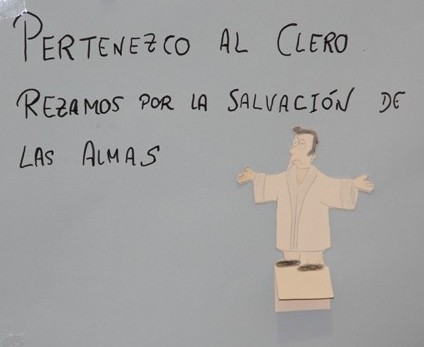 PERTENEZCO AL CLERO.
REZAMOS POR LA SALVACIÓN DE
LAS ALMAS